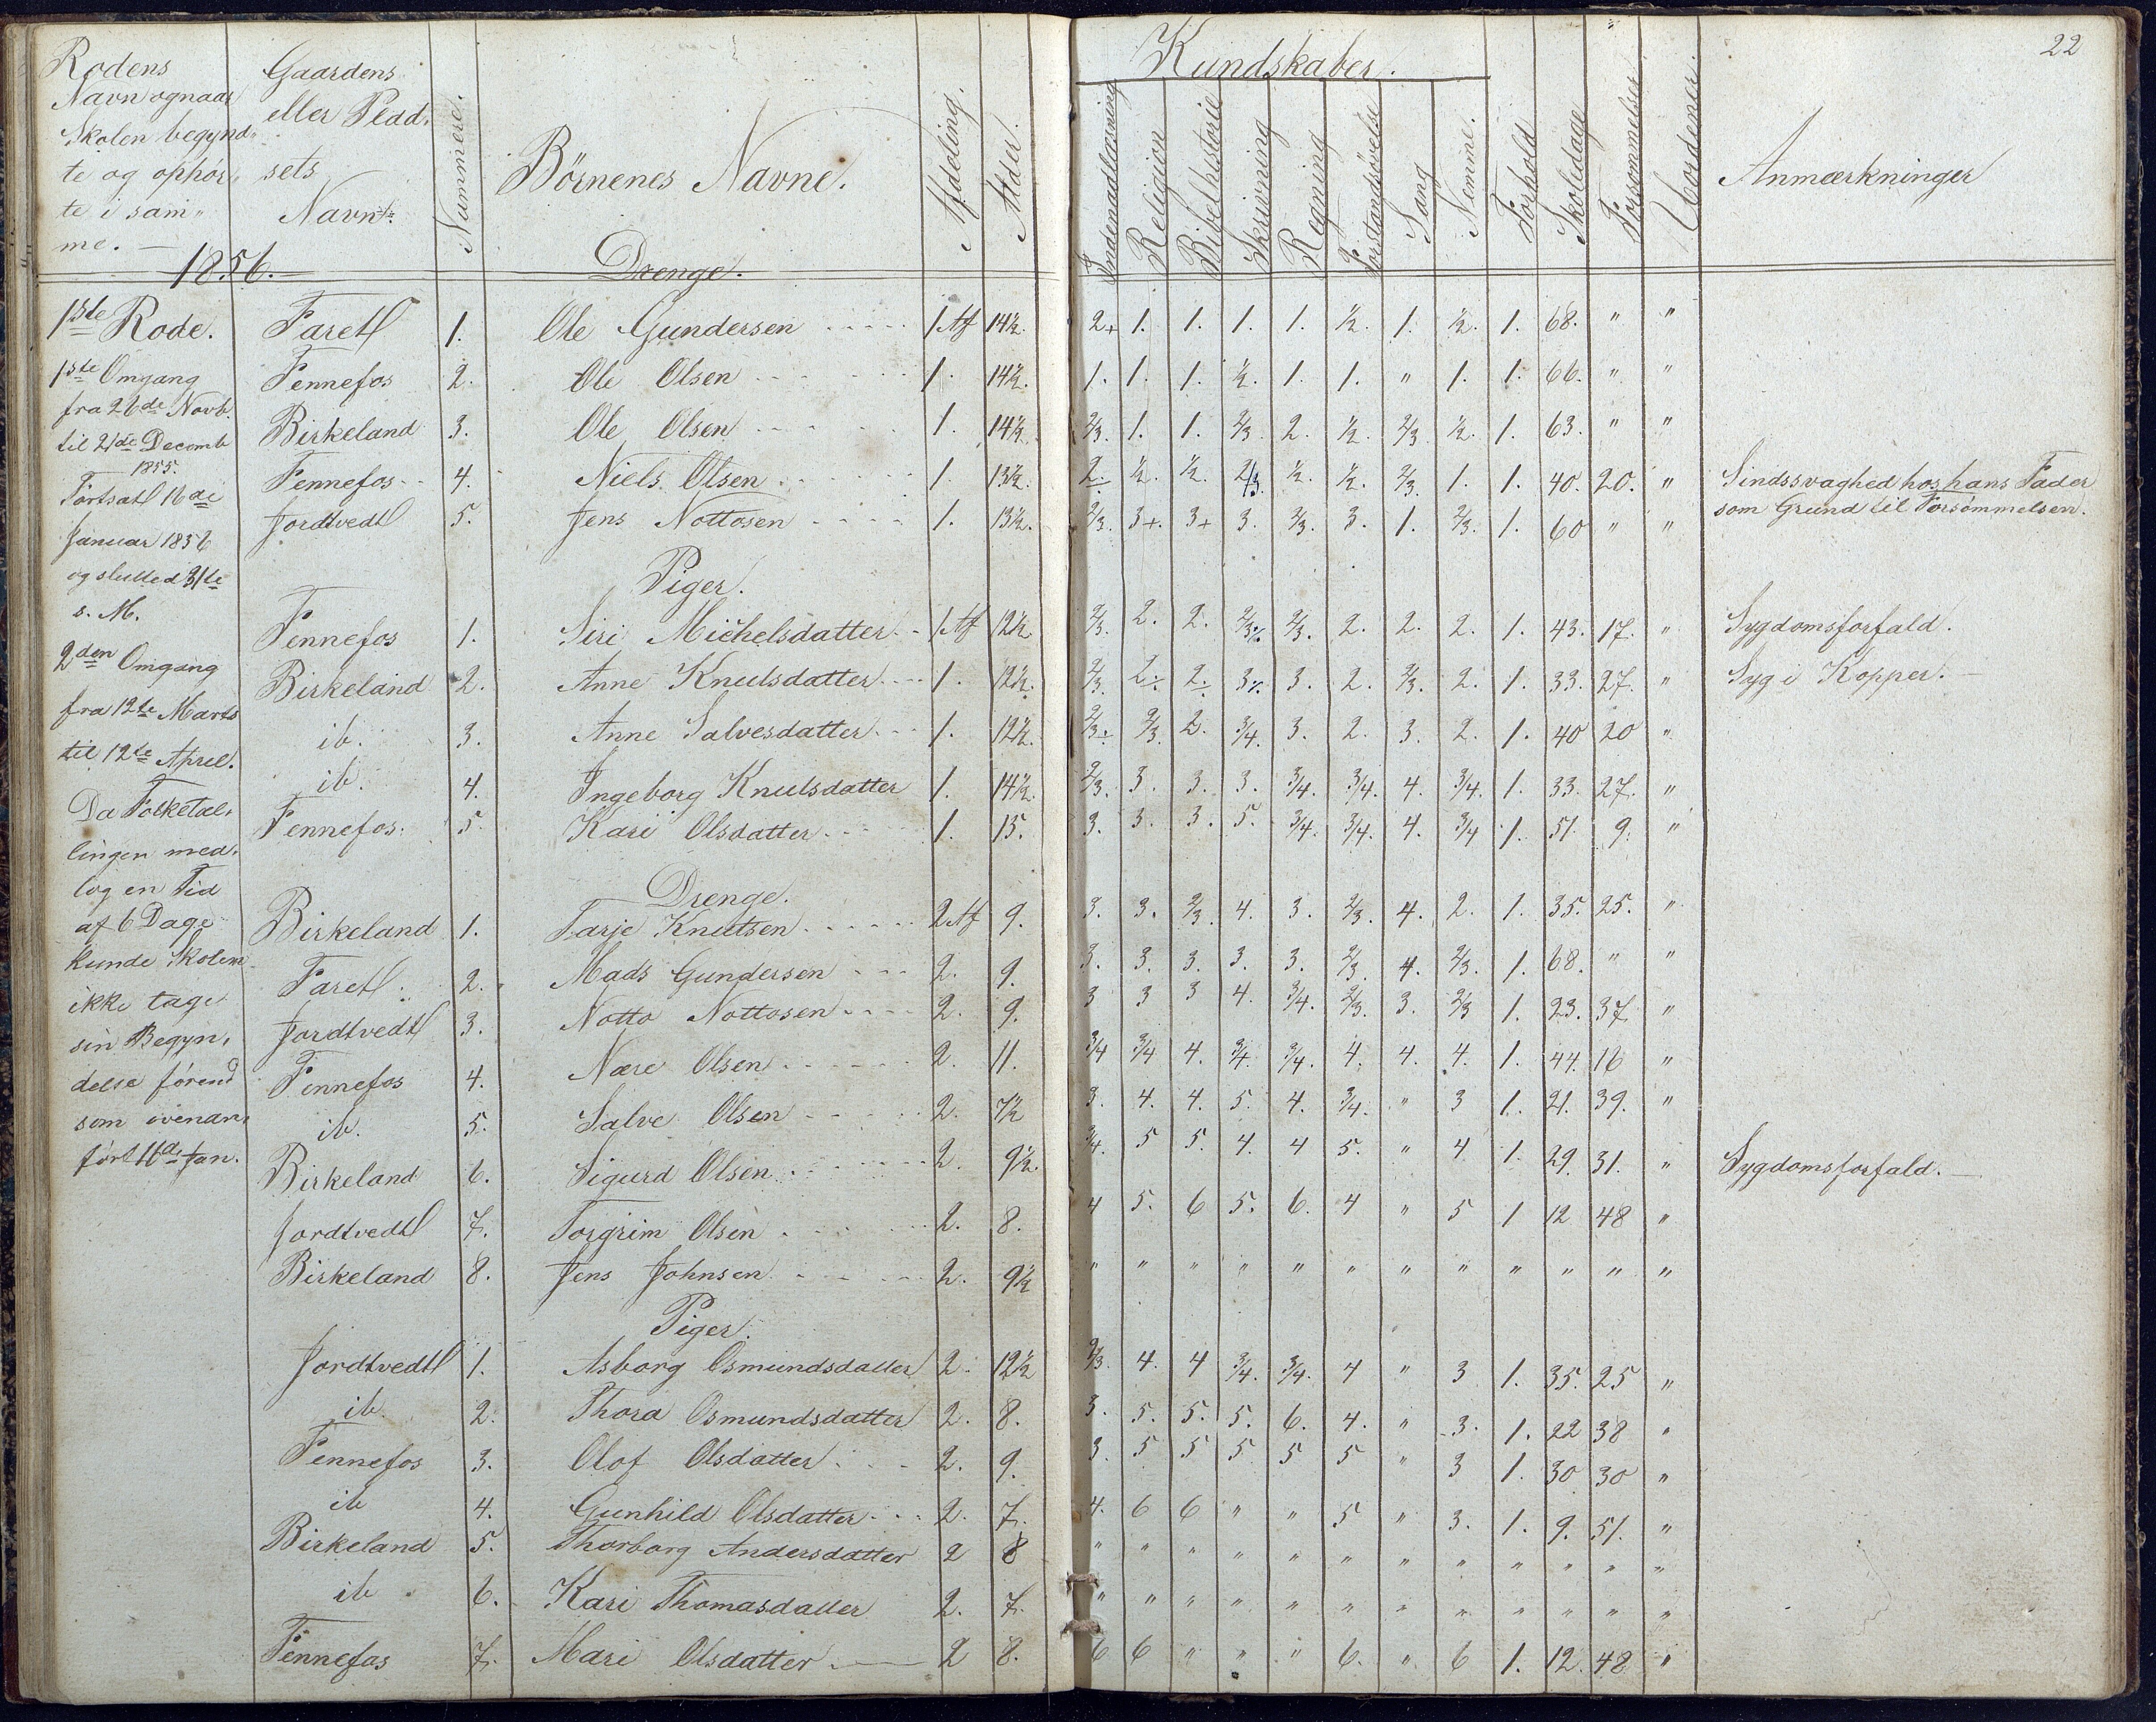 22
Rodens
Navn og naar
Skolen begynd-
te og ophør-
te i sam-
me. —
Gaardens
eller Plad-
sets
Navne
Nummere.
Börnenes Navne.
Afdeling.
Alder.
Kundskaber.
Indenadlæsning
Religion
Bibelhistorie
Skrivning
Regning
Forstandsövelse
Sang
Nemme.
Forhold
Skoledage
Forsømmelser
Uordener.
Anmærkninger
1856.
Drenge.
1ste Rode. Faret 1. Ole Gundersen 1 Af 14½. 2+ 1. 1. 1. 1. ½. 1. ½. 1. 68. " "
1ste Omgang Fennefos 2. Ole Olsen 1. 14½. 1. 1. 1. ½. 1. 1. " 1. 1. 66. " "
fra 26de Novb.
til 21de Decemb Birkeland 3. Ole Olsen 1. 14½ 2/3. 1. 1. 2/3. 2. ½. 2/3. ½. 1. 63. " "
1855.
Fortsat 16de Fennefos 4. Niels Olsen 1. 13½. 2. ½. ½. 2/3. ½. ½. 2/3. 1. 1. 40. 20. " Sindssvaghed hos hans Fader
Januar 1856 Jordtvedt 5. Jens Nottosen 1. 13½. 2/3. 3+. 3+ 3. 2/3. 3. 1. 2/3. 1. 60 " " som Grund til Forsömmelsen.
og slutted 31te
Piger.
s. M.
Fennefos 1. Siri Michelsdatter 1 Af 12½. 2/3. 2. 2. 2/3 2/3. 2. 2. 2. 1. 43. 17. " Sygdomsforfald.
2den Omgang
Birkeland 2. Anne Knutsdatter 1. 12½. 2/3. 2. 2. 3 3. 2. 2/3. 2. 1. 33. 27. " Syg i Kopper. —
fra 12te Marts
ib. 3. Anne Salvesdatter 1. 12½. 2/3 2/3. 2. 3/4. 3. 2. 3. 2. 1. 40 20 "
til 12te April.
ib. 4. Ingeborg Knutsdatter 1. 14½. 2/3. 3. 3. 3. 3/4. 3/4. 4. 3/4. 1. 33. 27. "
Da Folketæl-
Fennefos. 5. Kari Olsdatter 1. 15. 3. 3. 3. 5. 3/4. 3/4. 4. 3/4 1. 51. 9. "
lingen med-
Drenge.
tog en Tid
af 6 Dage Birkeland 1. Tarje Knutsen 2 Af 9. 3. 3. 2/3. 4. 3. 2/3. 4. 2. 1. 35. 25. "
kunde Skolen
Faret 2. Mads Gundersen 2. 9. 3. 3. 3. 3. 3. 2/3. 4. 2/3. 1. 68. " "
ikke tage
sin Begyn- Jordtvedt 3. Notto Nottosen 2. 9. 3 3 3 4. 3/4. 2/3. 3. 2/3 1. 23. 37. "
delse førend Fennefos 4. Nære Olsen 2. 11. 3/4 3/4 4. 3/4. 3/4. 4. 4. 4. 1. 44. 16 "
som ovenan-
ib. 5. Salve Olsen 2. 7½ 3. 4. 4. 5. 4. 3/4. " 3 1. 21. 39. "
ført 16de Jan.
Birkeland 6. Sigurd Olsen 2. 9½. 3/4. 5 5. 4. 4 5. " 4 1. 29. 31. " Sygdomsforfald. —
Jordtvedt 7. Torgrim Olsen 2. 8. 4 5. 6 5. 6. 4 " 5 1 12 48 "
Birkeland 8. Jens Johnsen 2. 9½ " " " " " " " " " " " "
Piger.
Jordtvedt 1. Asborg Osmundsdatter 2. 12½ 2/3. 4. 4 3/4. 3/4. 4 " 3 1. 35. 25 "
ib. 2. Thora Osmundsdatter 2. 8. 3. 5. 5. 5. 6. 4. " 3. 1. 22 38 "
Fennefos 3. Olof Olsdatter 2. 9. 3. 5 5 5 5 5 " 3 1. 30 30 "
ib 4. Gunhild Olsdatter 2. 7. 4. 6 6 " " 5 " 3. 1. 9. 51. "
Birkeland 5. Thorborg Andersdatter 2 8 " " " " " " " " " " " "
ib 6. Kari Thomasdatter 2. 7. " " " " " " " " " " " "
Fennefos 7. Mari Olsdatter 2 8. 6 6 " " " 6. " 6 1. 12. 48 "